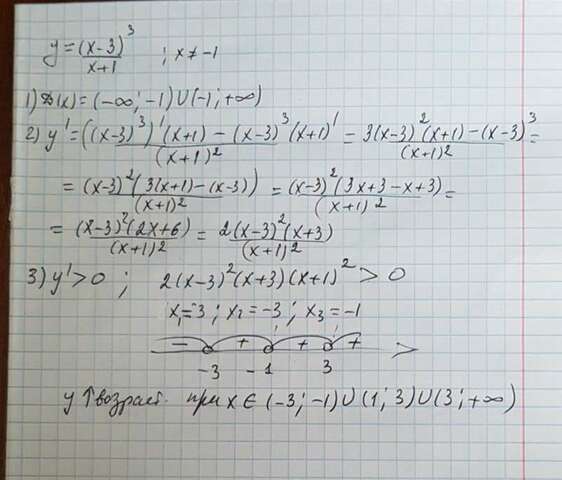 y = (x-3)³/(x+1) ; x ≠ -1
1) D(x) = (-∞; -1) U (-1; +∞)
2) y' = ((x-3)³)'(x+1) - (x-3)³(x+1)'/(x+1)² = 3(x-3)²(x+1) - (x-3)³/(x+1)² =
= (x-3)²(3(x+1) - (x-3))/(x+1)² = (x-3)²(3x+3-x+3)/(x+1)² =
= (x-3)²(2x+6)/(x+1)² = 2(x-3)²(x+3)/(x+1)²
3) y' > 0 ; 2(x-3)²(x+3)(x+1)² > 0
x₁=3 ; x₂=-3 ; x₃=-1
- + + +
-3 -1 3
y ↑ возраст. при x ∈ (-3; -1) U (1; 3) U (3; +∞)